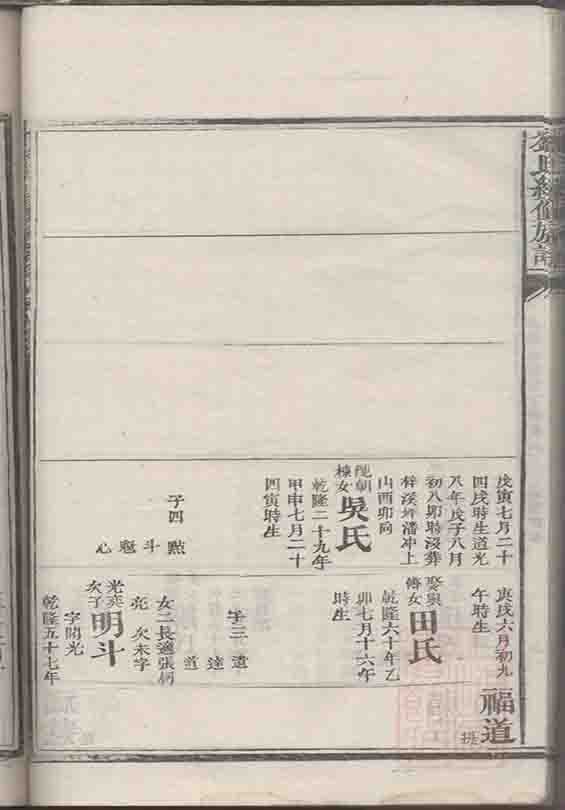 氏續修族譜
戊寅七月二十
四戌時生道光
八年戊子八月
初八卯時沒葬
梓溪坪潘冲上
山酉卯向
德朝
棟女
吳氏
乾隆二十九年
甲申七月二十
四寅時生
子四
點
斗
魁
心
庚戌六月初九
午時生
娶與
傳女
田氏
乾隆六十年乙
卯七月十六午
時生
子三
遺
達
道
女二長適張炳
亮
次未字
光奕
次子
明斗
字開光
乾隆五十七年
福道
提